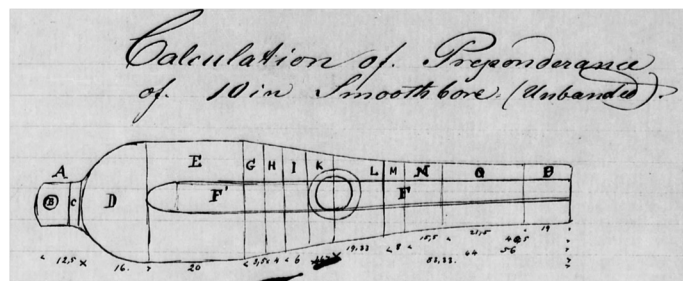 Calculation of Preponderance
of 10 in Smoothbore. (Unbanded).
A E G H I K L M N O P
B C D F' F
12,5 16. 20 3,5 4 6. 19.33 8 15,5 23,5 19
44 56